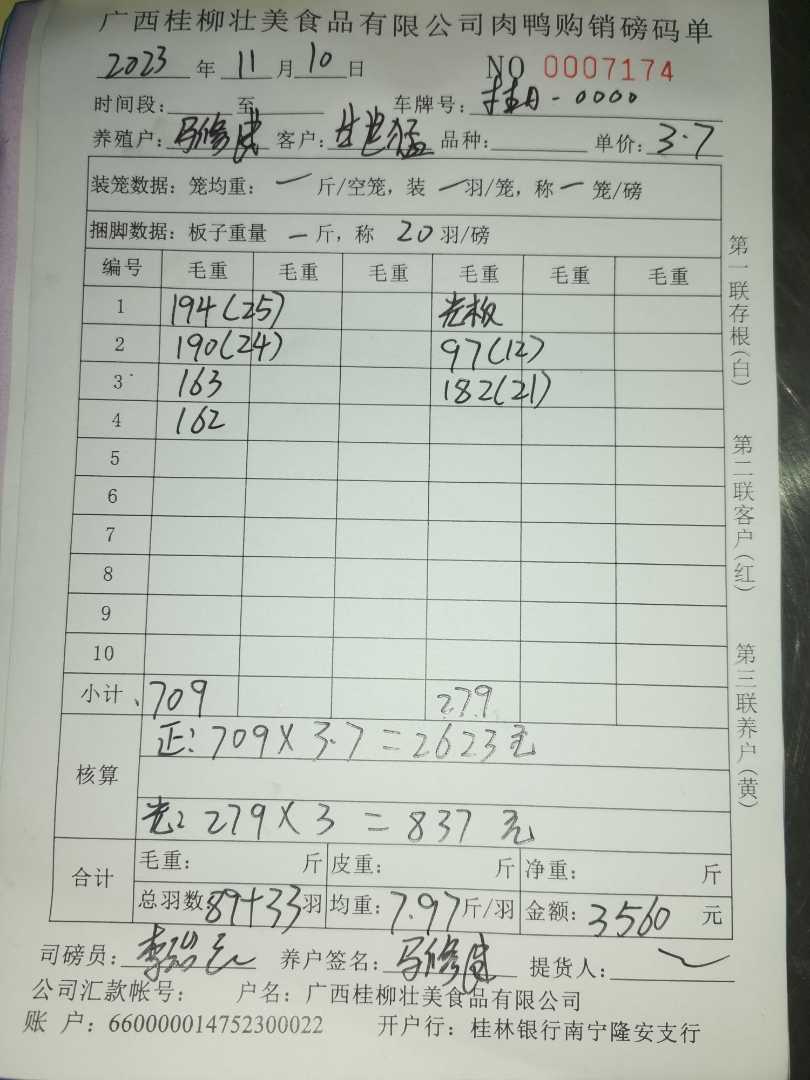 广西桂柳壮美食品有限公司肉鸭购销磅码单
2023 年 11 月 10 日 NO 0007174
时间段: 至 车牌号: 桂A-0000
养殖户: 马修 客户: 猛 品种: 单价: 3.7
装笼数据: 笼均重: 一 斤/空笼, 装 一 羽/笼, 称 一 笼/磅
捆脚数据: 板子重量 一 斤, 称 20 羽/磅
编号 毛重 毛重 毛重 毛重 毛重 毛重
1 194(25) 光板
2 190(24) 97(12)
3 163 182(21)
4 162
5
6
7
8
9
10
小计 709 279
核算
正: 709×3.7=2623元
光: 279×3=837元
合计
毛重: 斤 皮重: 斤 净重: 斤
总羽数: 89+33 羽 均重: 7.97 斤/羽 金额: 3560 元
司磅员: 李 养户签名: 马修 提货人:
公司汇款帐号: 户名: 广西桂柳壮美食品有限公司
账 户: 660000014752300022 开户行: 桂林银行南宁隆安支行
第一联存根(白)
第二联客户(红)
第三联养户(黄)